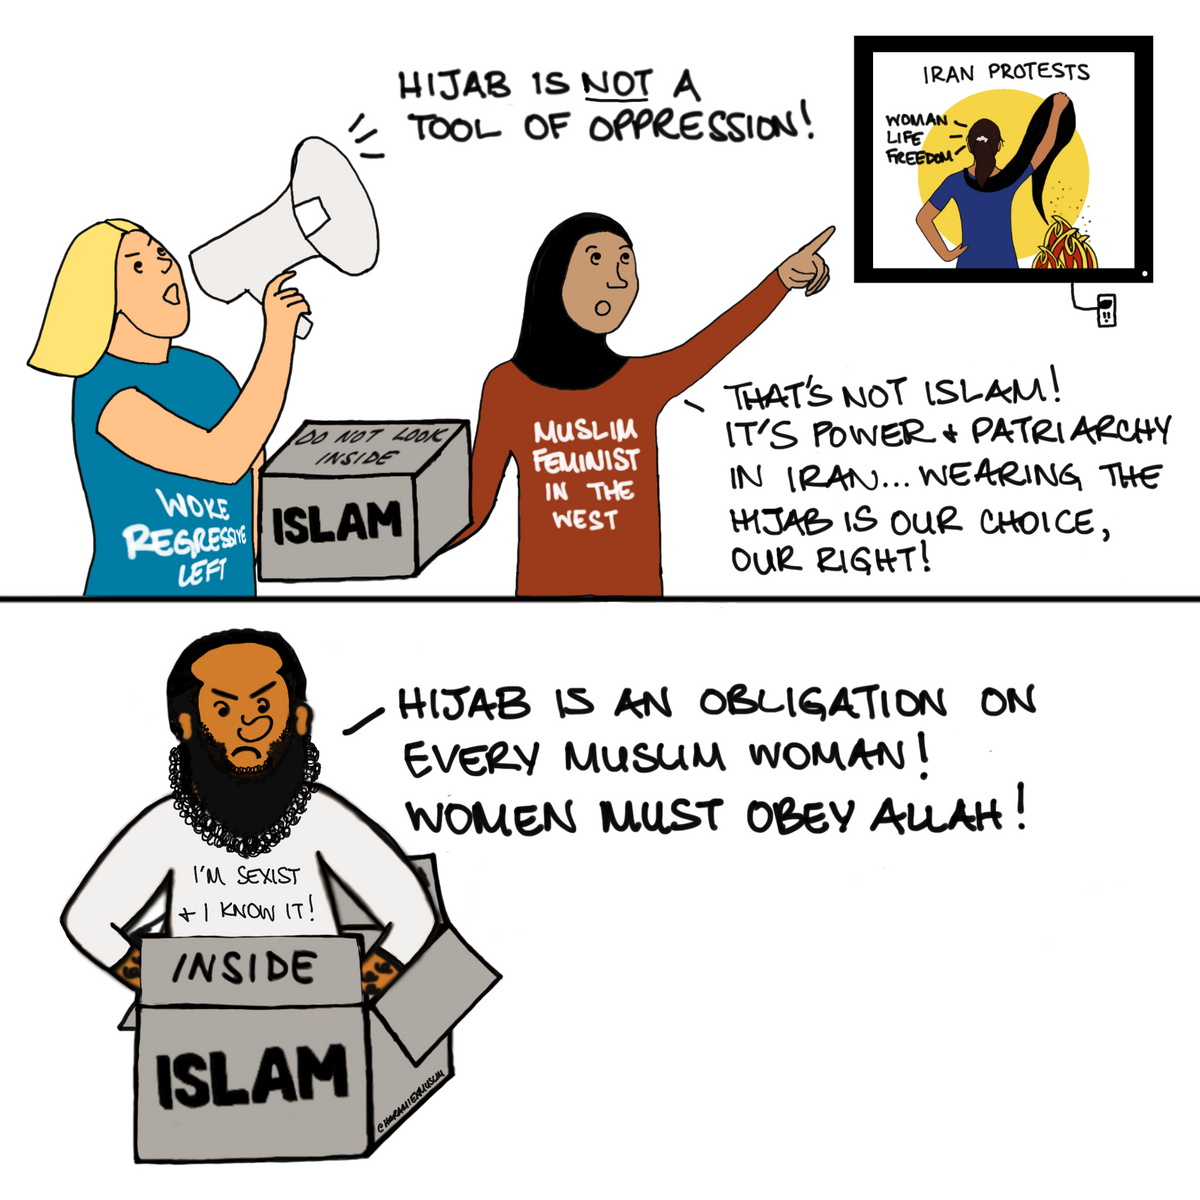 HIJAB IS NOT A
TOOL OF OPPRESSION!
IRAN PROTESTS
WOMAN
LIFE
FREEDOM
DO NOT LOOK
INSIDE
ISLAM
WOKE
REGRESSIVE
LEFT
MUSLIM
FEMINIST
IN THE
WEST
THAT'S NOT ISLAM!
IT'S POWER & PATRIARCHY
IN IRAN... WEARING THE
HIJAB IS OUR CHOICE,
OUR RIGHT!
HIJAB IS AN OBLIGATION ON
EVERY MUSLIM WOMAN!
WOMEN MUST OBEY ALLAH!
I'M SEXIST
& I KNOW IT!
INSIDE
ISLAM
@HARAMIEXMUSLIM